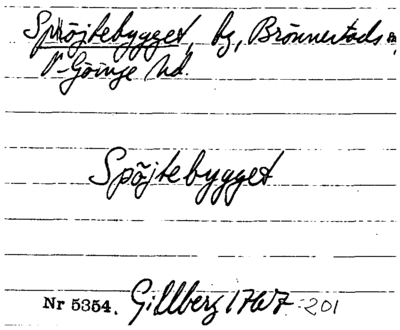 Spöjtebygget, by, Brönnestads
V-Göinge hd.
Spöjtebygget
Nr 5354. Gillberg 1767 :201